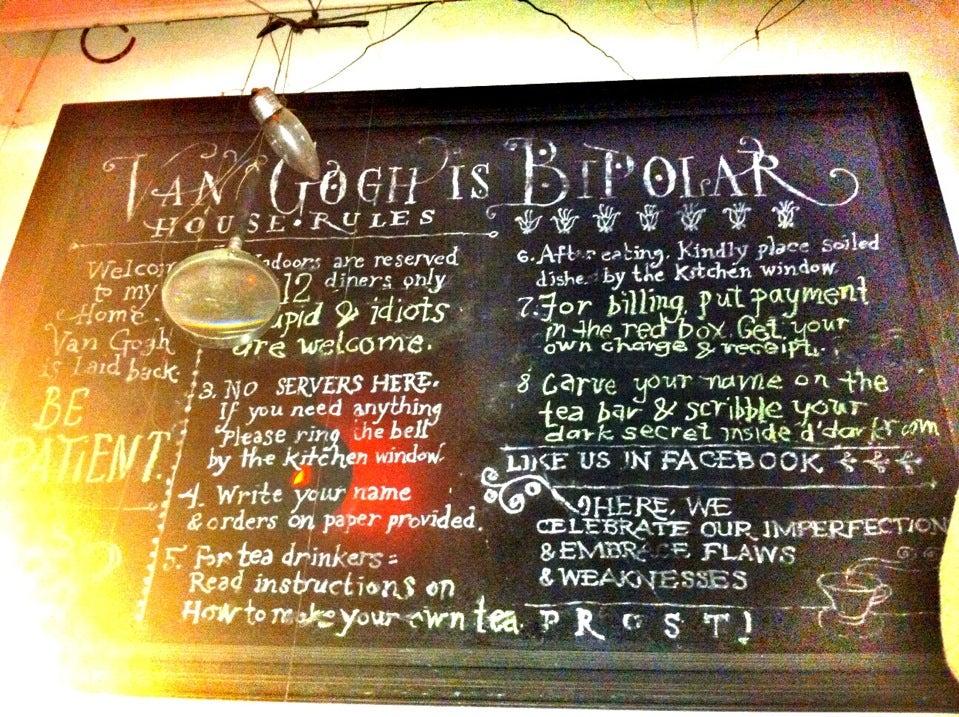 VAN GOGH IS BIPOLAR
HOUSE • RULES
Welcom
to my
Home.
Van Gogh
is laid back.
BE
PATIENT.
ndoors are reserved
12 diners only
upid & idiots
are welcome.
3. NO SERVERS HERE.
If you need anything
Please ring the bell
by the kitchen window.
4. Write your name
& orders on paper provided.
5. For tea drinkers:
Read instructions on
How to make your own tea.
6. After eating, Kindly place soiled
dishe by the Kitchen window
7. For billing, put payment
in the red box. Get your
own change & receipt.
8 Carve your name on the
tea bar & scribble your
dark secret inside d'dark r'om
LIKE US IN FACEBOOK
HERE, WE
CELEBRATE OUR IMPERFECTION
& EMBRACE FLAWS
& WEAKNESSES
PROST!